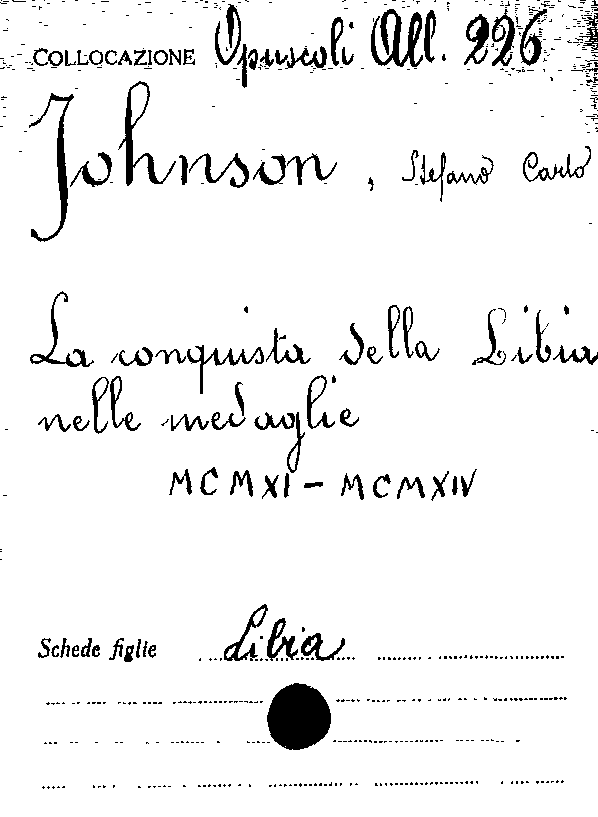 COLLOCAZIONE Opuscoli All. 226
Johnson, Stefano Carlo
La conquista della Libia
nelle medaglie
MCMXI - MCMXIV
Schede figlie Libia